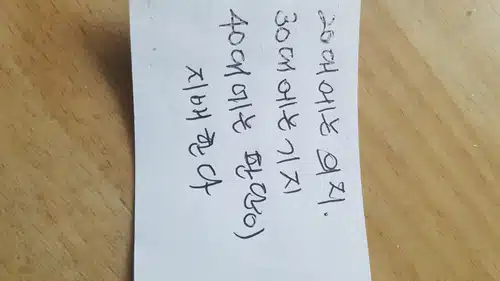 20대에는 의지.
30대에는 기지
40대에는 판단이
지배한다